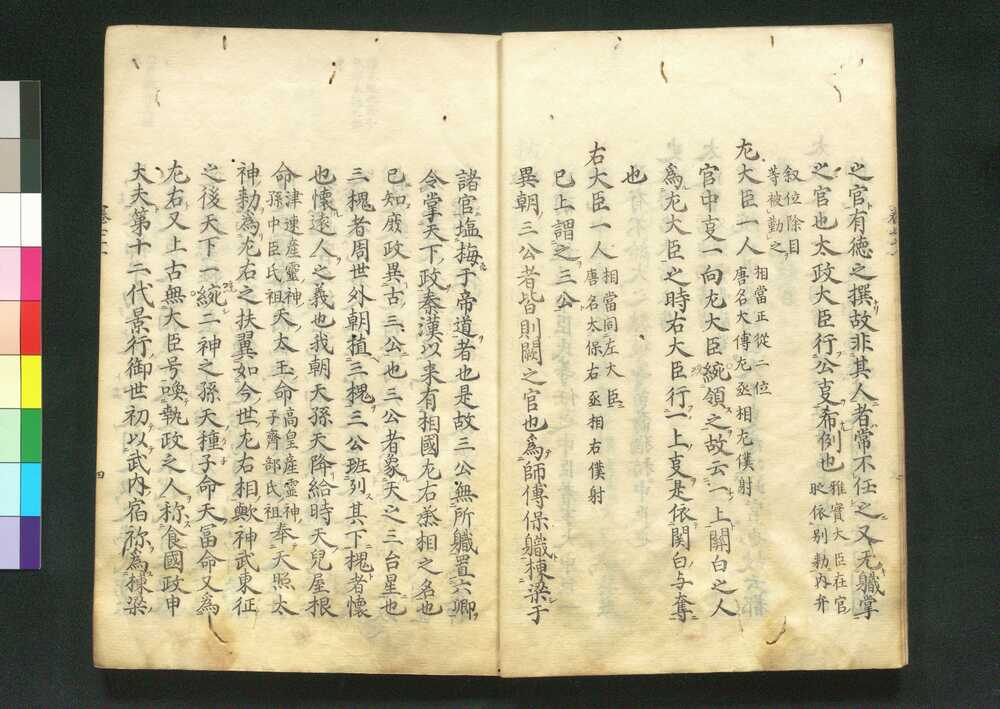 之官有徳之撰故非其人者常不任之又无軄掌
之官也太政大臣行公亊希例也雅實大臣在官
時依別勅内弁
叙位除目
等被勤之
尢大臣一人相當正從二位
唐名大傅尢丞相尢僕射
官中亊一向尢大臣統領之故云一上關白之人
爲尢大臣之時右大臣行一上亊是依関白与奪
也
右大臣一人相當同左大臣
唐名太保右丞相右僕射
已上謂之三公
異朝三公者皆則闕之官也爲師傅保軄棟梁于
諸官塩梅于帝道者也是故三公無所軄置六卿
令掌天下政秦漢以来有相國尢右丞相之名也
已知厥政異古三公也三公者象天之三台星也
三槐者周世外朝植三槐三公班列其下槐者懐
也懐遠人之義也我朝天孫天降給時天兒屋根
命津速産靈神
孫中臣氏祖天太玉命高皇産靈神
子齊部氏祖奉天照太
神勅為尢右之扶翼如今世尢右相歟神武東征
之後天下一統二神之孫天種子命天冨命又為
尢右又上古無大臣号喚執政之人称食國政申
大夫第十二代景行御世初以武内宿祢為棟梁
四